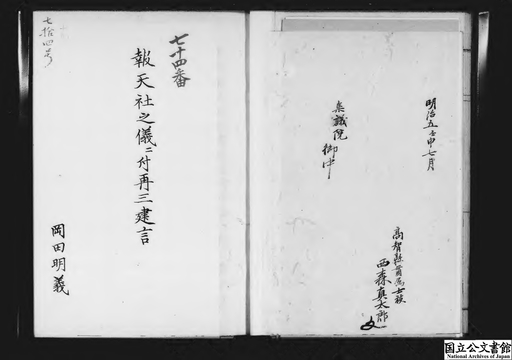 明治五壬申七月
集議院
御中
高智縣貫属士族
西森真太郎
七拾四号
七十四番
報天社之儀ニ付再三建言
岡田明義
国立公文書館
National Archives of Japan